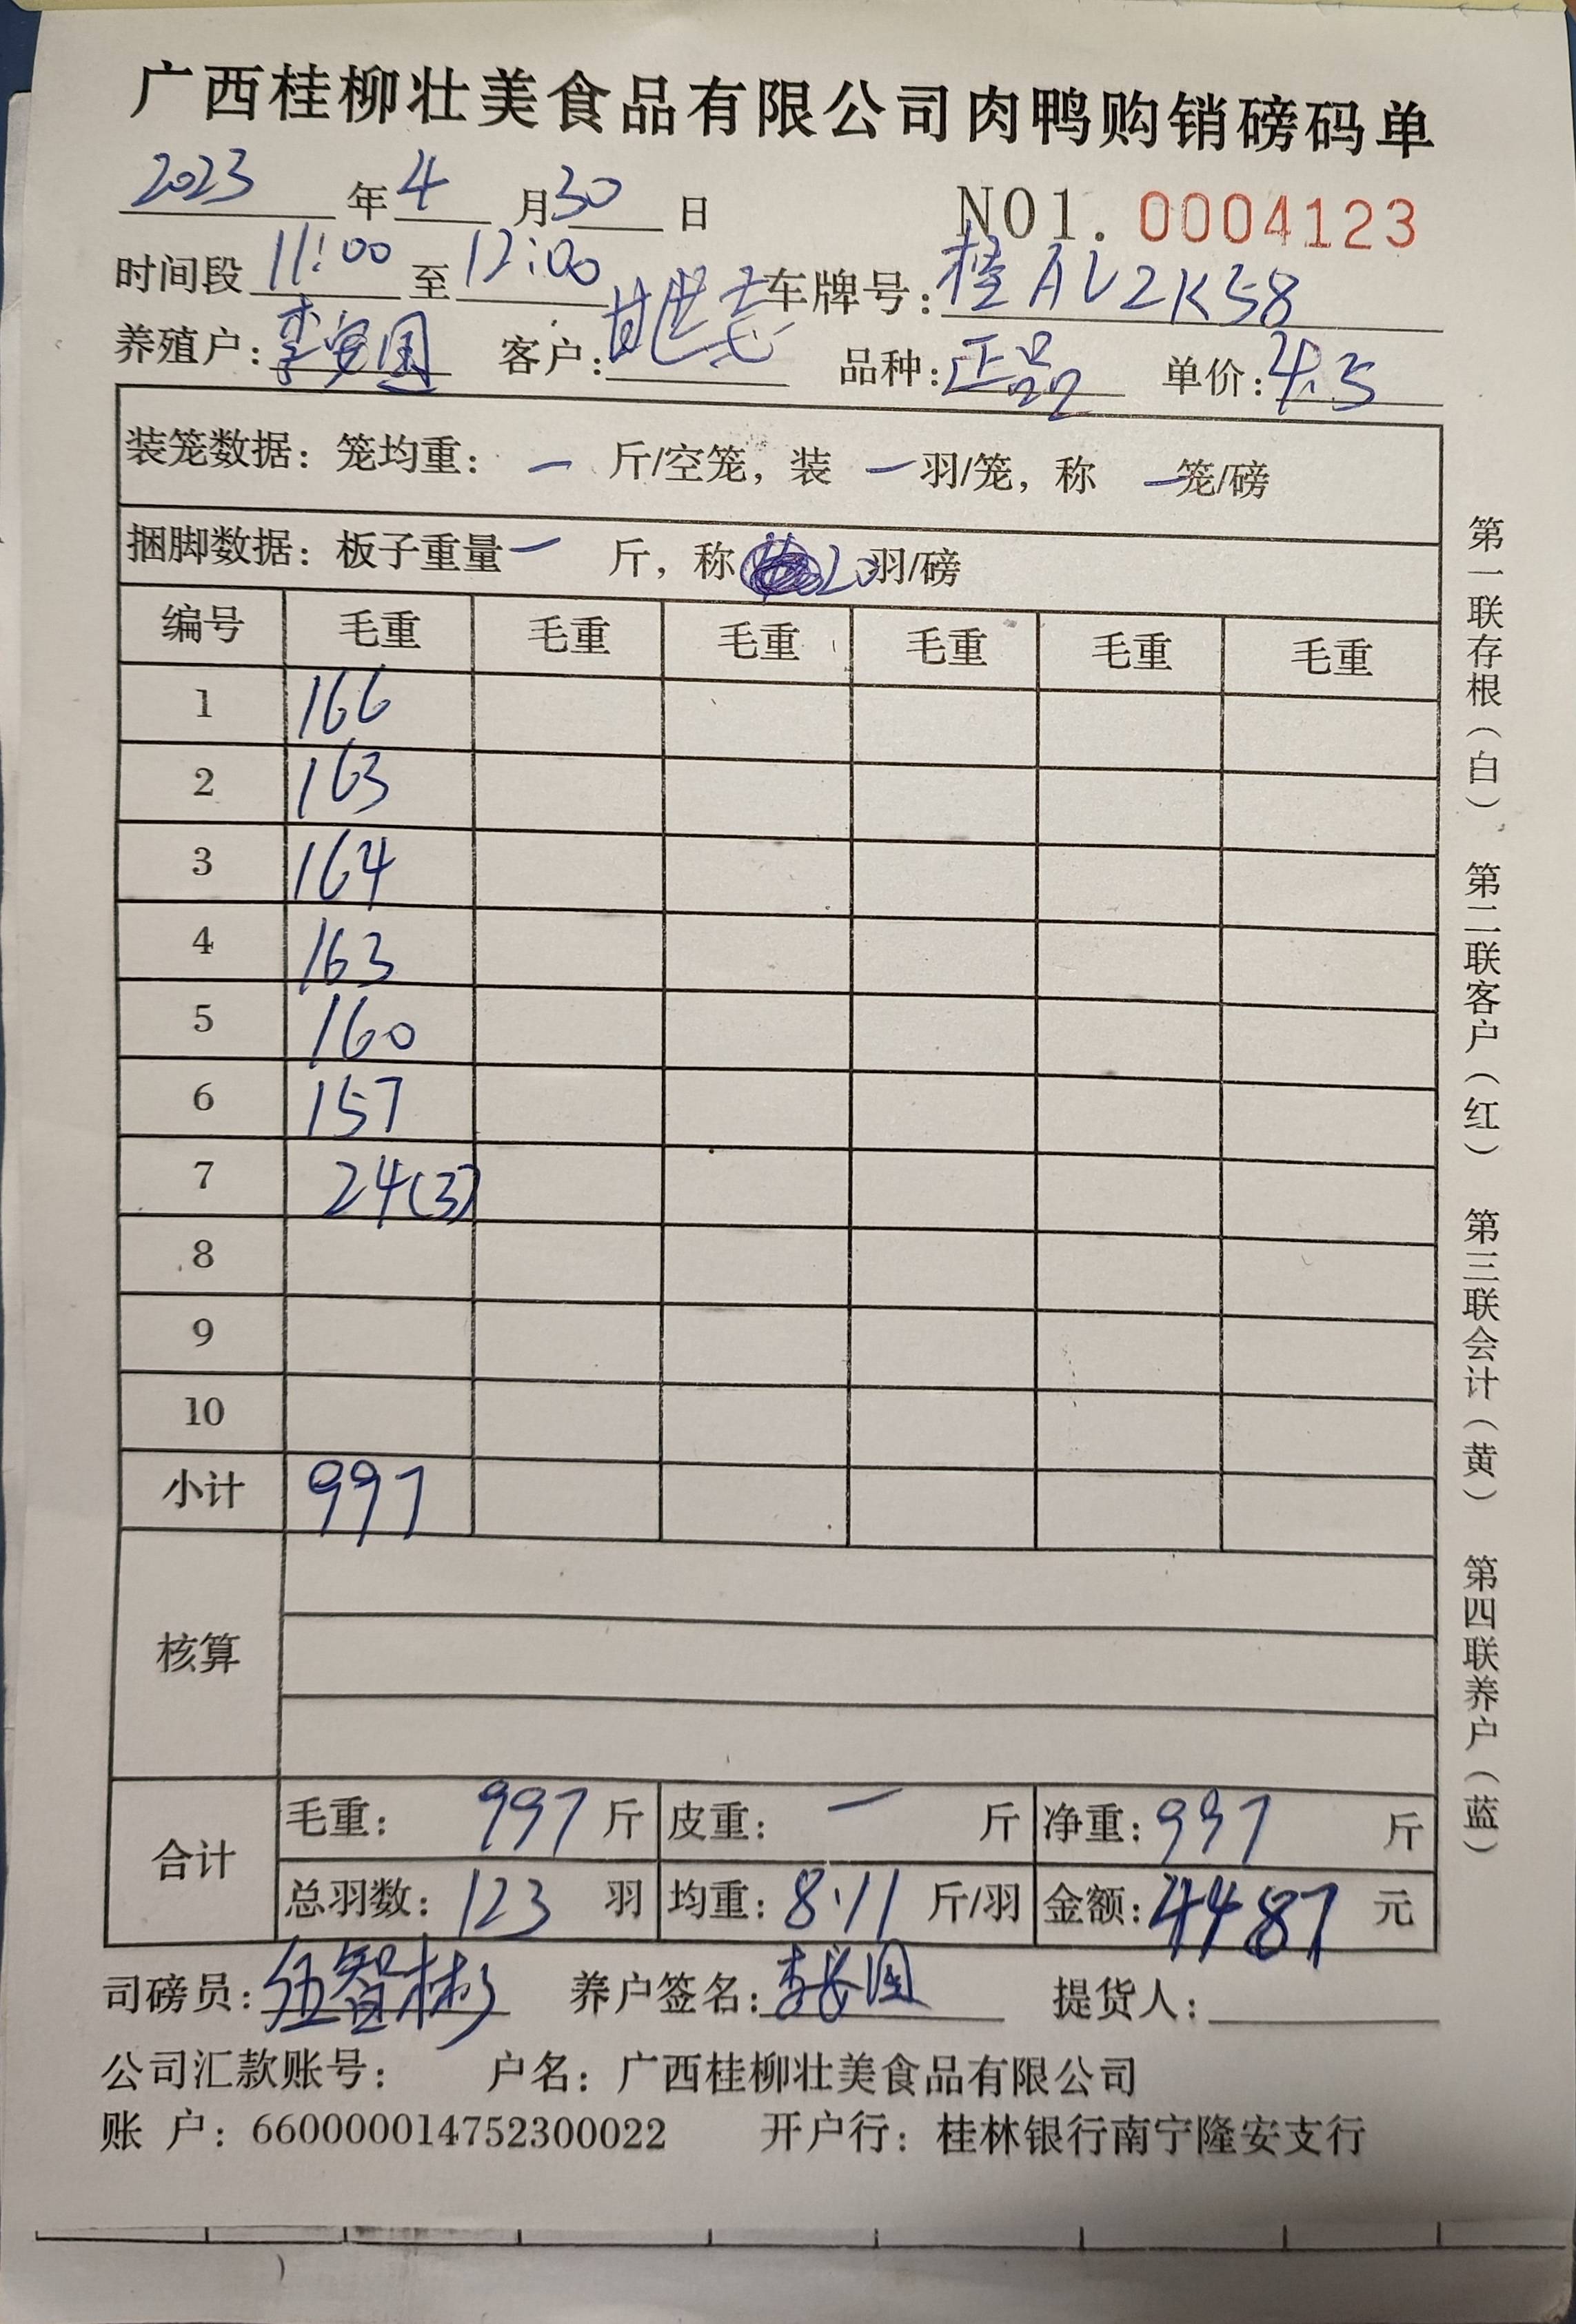 广西桂柳壮美食品有限公司肉鸭购销磅码单
2023 年 4 月 30 日 NO1. 0004123
时间段 11:00 至 12:00 车牌号: 桂AV2K58
养殖户: 李安国 客户: 甘世志 品种: 正品 单价: 4.5
装笼数据: 笼均重: — 斤/空笼, 装 — 羽/笼, 称 — 笼/磅
捆脚数据: 板子重量 — 斤, 称 20 羽/磅
编号 毛重 毛重 毛重 毛重 毛重 毛重
1 166
2 163
3 164
4 163
5 160
6 157
7 24(3)
8
9
10
小计 997
核算
合计 毛重: 997 斤 皮重: — 斤 净重: 997 斤
总羽数: 123 羽 均重: 8.11 斤/羽 金额: 4487 元
司磅员: 伍智彬 养户签名: 李安国 提货人:
公司汇款账号: 户名: 广西桂柳壮美食品有限公司
账 户: 660000014752300022 开户行: 桂林银行南宁隆安支行
第一联存根(白) 第二联客户(红) 第三联会计(黄) 第四联养户(蓝)